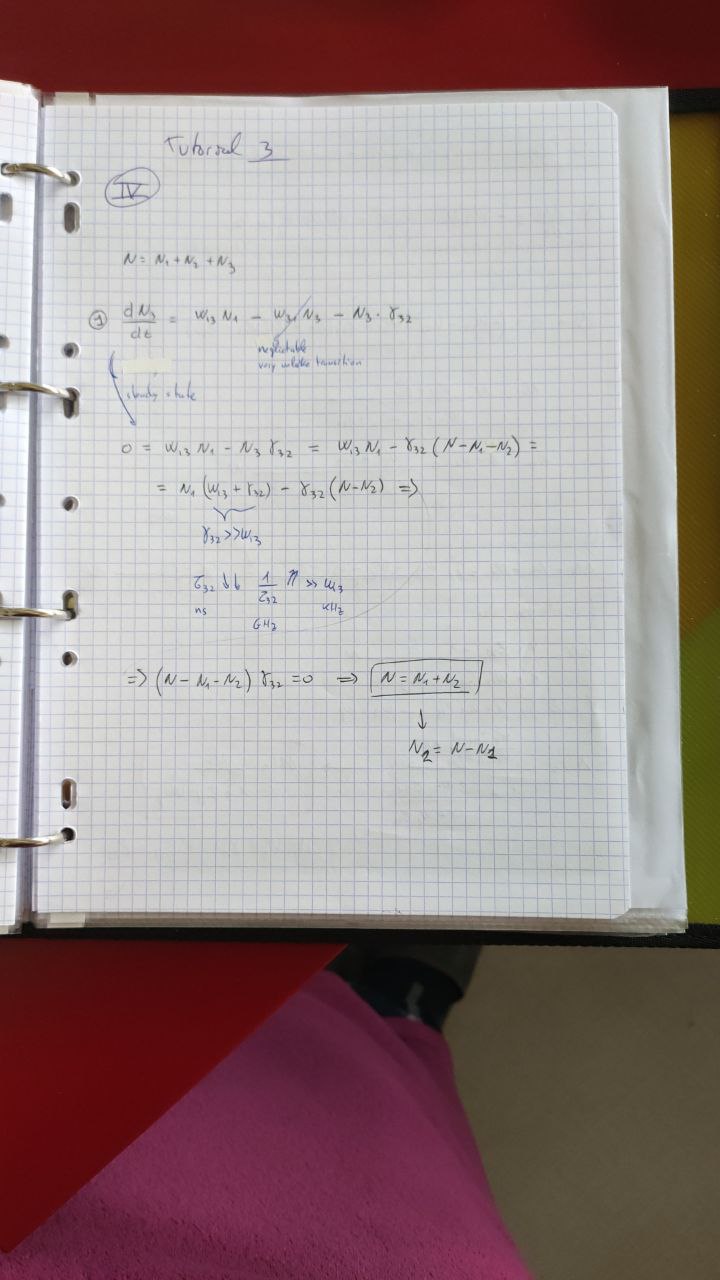 Tutorial 3
IV
N = N₁ + N₂ + N₃
① dN₃/dt = W₁₃ N₁ − W₃₁ N₃ − N₃ · γ₃₂
neglectable
very unlike transition
steady state
0 = W₁₃ N₁ − N₃ γ₃₂ = W₁₃ N₁ − γ₃₂ (N − N₁ − N₂) =
= N₁ (W₁₃ + γ₃₂) − γ₃₂ (N − N₂) ⇒
γ₃₂ >> W₁₃
τ₃₂ ↓↓ 1/τ₃₂ ⇈ >> W₁₃
ns GHz KHz
=> (N − N₁ − N₂) γ₃₂ = 0 ⇒ N = N₁ + N₂
↓
N₂ = N − N₁